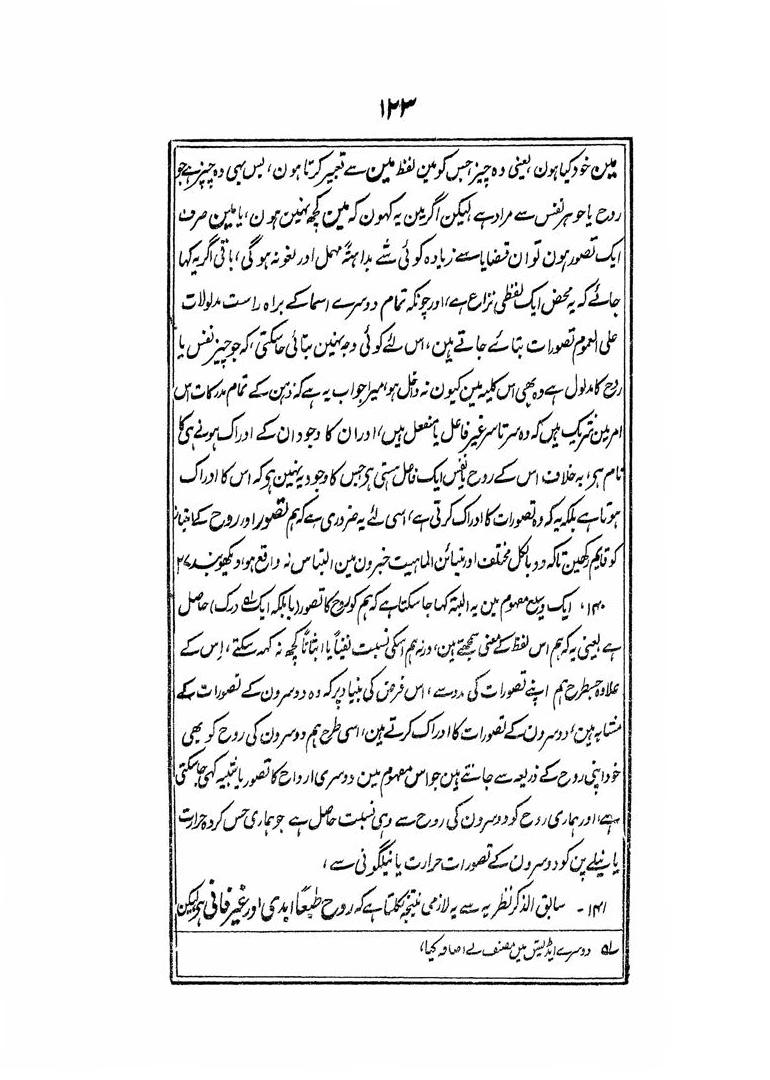 ۱۲۳
مین خود کیا ہون، یعنی وہ چیز جس کو مین لفظ مین سے تعبیر کرتا ہون، پس یہی وہ چیز ہے جو
روح یا جوہر نفس سے مراد ہے لیکن اگر مین یہ کہون کہ مین کچھ نہین ہون، یا مین صرف
ایک تصور ہون تو ان قضایا سے زیادہ کوئی شے بداہتہً مہمل اور لغو نہ ہوگی، باقی اگر یہ کہا
جائے کہ یہ محض ایک لفظی نزاع ہے، اور چونکہ تمام دوسرے اسما کے براہ راست مدلولات
علی العموم تصورات بتائے جاتے ہین، اس لئے کوئی وجہ نہین بتائی جاسکتی، کہ جو چیز نفس یا
روح کا مدلول ہے وہ بھی اس کلیہ مین کیون نہ داخل ہو، میرا جواب یہ ہے کہ ذہن کے تمام مدرکات اس
امر مین شریک ہین کہ وہ سرتاسر غیر فاعل یا منفعل ہین، اور ان کا وجود ان کے ادراک ہونے ہی کا
نام ہی، بہ خلاف اس کے روح یا نفس ایک فاعل ہستی ہی جس کا وجود یہ نہین ہی کہ اس کا ادراک
ہوتا ہے بلکہ یہ کہ وہ تصورات کا ادراک کرتی ہے، اسی لئے یہ ضروری ہے کہ ہم تصور اور روح کے امتیاز
کو قایم رکھین تاکہ دو بالکل مختلف اور متبائن الماہیت چیزون مین التباس نہ واقع ہو، دیکھو بند ۲۷
۱۴۰، ایک وسیع مفہوم مین یہ البتہ کہا جا سکتا ہے کہ ہم کو روح کا تصور (یا بلکہ ایک ؎ درک) حاصل
ہے یعنی یہ کہ ہم اس لفظ کے معنی سمجھتے ہین، ورنہ ہم اسکی نسبت نفیاً یا اثباتاً کچھ نہ کہہ سکتے، اِس کے
علاوہ جسطرح ہم اپنے تصورات کی مدد سے، اس فرض کی بنیاد پر کہ وہ دوسرون کے تصورات کے
مشابہ ہین، دوسرون کے تصورات کا ادراک کرتے ہین، اسی طرح ہم دوسرون کی روح کو بھی
خود اپنی روح کے ذریعہ سے جانتے ہین جو اس مفہوم مین دوسری ارواح کا تصور یا شبیہ کہی جاسکتی
ہے، اور ہماری روح کو دوسرون کی روح سے وہی نسبت حاصل ہے جو ہماری حس کردہ حرارت
یا نیلے پن کو دوسرون کے تصورات حرارت یا نیلگونی سے،
۱۴۱ ۔ سابق الذکر نظریہ سے یہ لازمی نتیجہ نکلتا ہے کہ روح طبیعاً ابدی اور غیر فانی ہی لیکن
؎ دوسرے ایڈیشن مین مصنف نے اضافہ کیا،